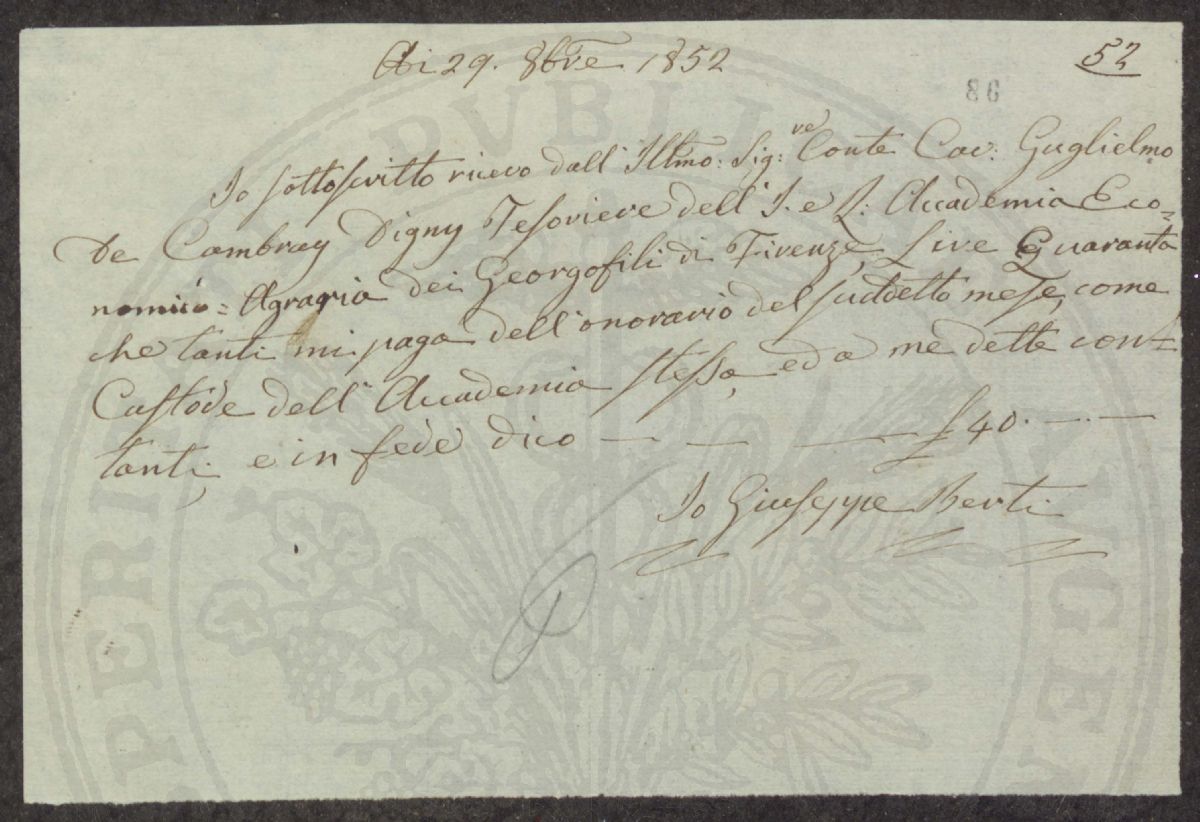 Adi 29. 8bre 1852
52
86
Io sottoscritto ricevo dall' Illmo: Sigre Conte Cav: Guglielmo
De Cambray Digny Tesoriere dell' I. e R: Accademia Eco=
nomico=Agraria dei Georgofili di Firenze, Lire Quaranta
che tanti mi paga dell' onorario del suddetto mese, come
Custode dell' Accademia stessa, ed a me dette con=
tanti; e in fede dico — — — £ 40. — . —
Io Giuseppe Berti